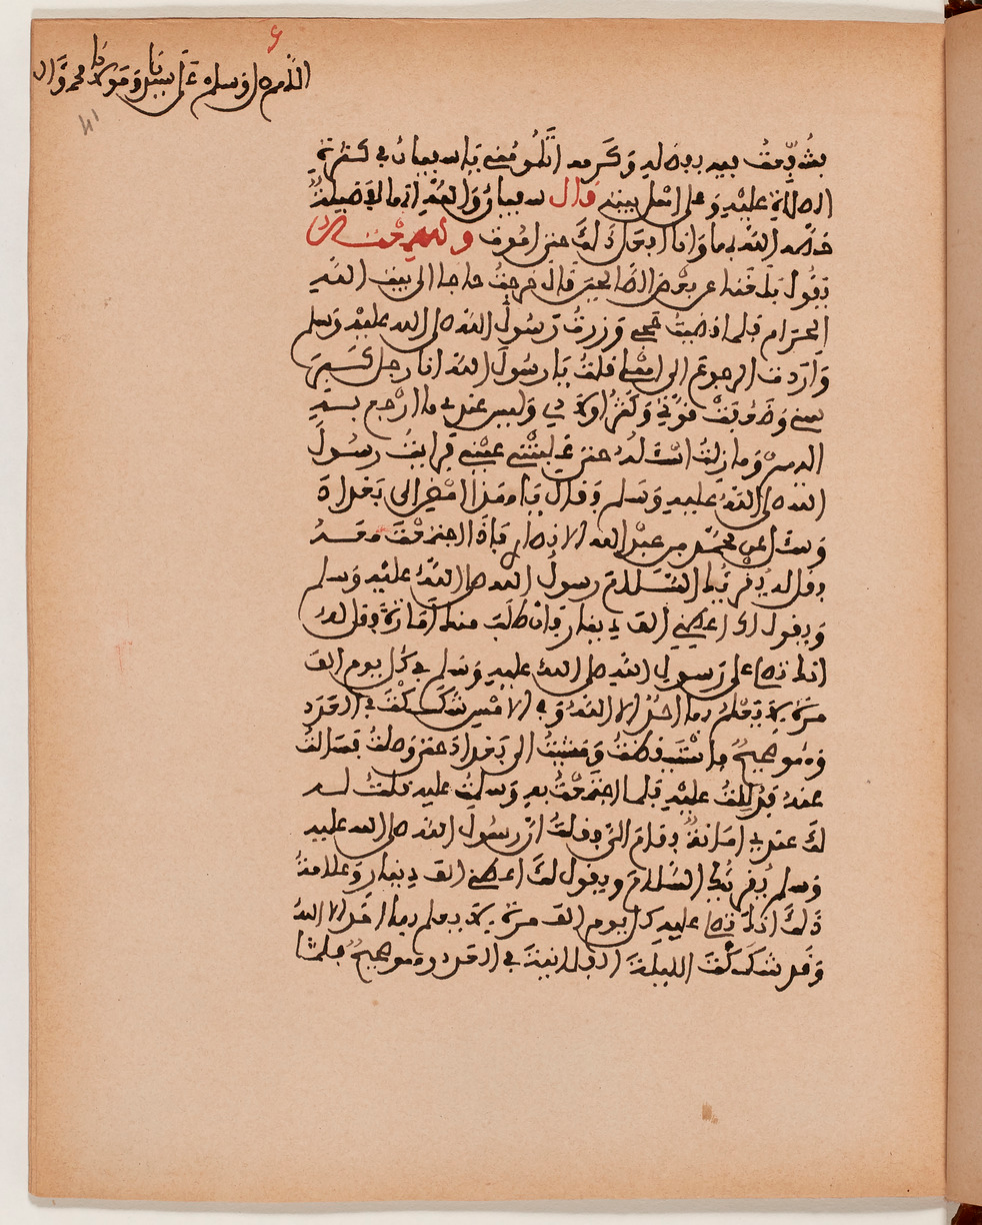 اللهم صل وسلم على سيدنا ومولانا محمد وآل
بيد وكرمه اتلو مني يا سيبان في كثرة
الصلاة عليه وعلى اهل بيته قال سيبان والله انها لفضيلة
والله بها وانا افعل ذلك حتى اموت
بلغنا عن بعض الصالحين قال خرجت حاجا الى بيت الله
الحرام فلما قضيت حجي وزرت رسول الله صلى الله عليه وسلم
واردت الرجوع الى اهلي فقلت يا رسول الله انا رجل كبير
سني وضعفت قوتي وكثر اولادي وليس عندي ما ارجع به
اليهم وما زلت اسئله حتى غلبتني عيني فرايت رسول
الله صلى الله عليه وسلم وقال يا هذا امض الى بغداد
وسئل عن محمد بن عبد الله الانصار فاذا اجتمعت معه
فقل له يقرئك السلام رسول الله صلى الله عليه وسلم
ويقول لك اعطني الف دينار فان طلب منك امارة فقل له
انك تصل على رسول الله صلى الله عليه وسلم في كل يوم الف
مرة لا يعلم بها احد الا الله وفي الامس شككت في العدد
وهو صحيح فاستيقظت ومشيت الى بغداد حتى وصلت فسالت
عنه فدللت عليه فلما اجتمعت به وسلمت عليه قلت له
لك عندي امانة فقام الي وقلت ان رسول الله صلى الله عليه
وسلم يقرئك السلام ويقول لك اعطني الف دينار وعلامة
ذلك انك تصل عليه كل يوم الف مرة لا يعلم بها احد الا الله
وقد شككت الليلة في العدد وهو صحيح فلما